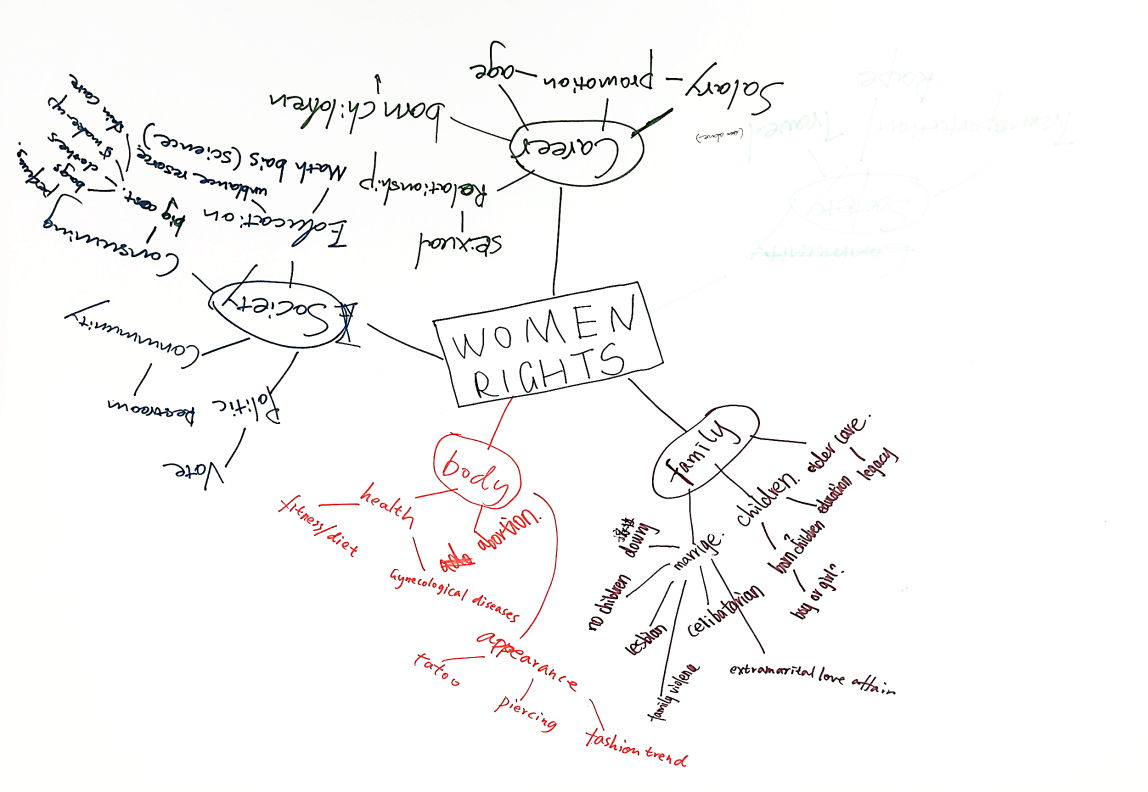 WOMEN
RIGHTS
Career
Salary
promotion
age
born children
Relationship
sexual
Society
Education
Math bais (science)
unblance resorse
Consuming
big cost
bags
clothes
make-up
skin care
Community
Restroom
Politic
Vote
body
health
fitness/diet
Gynecological diseases
abortion.
appearance
tatoo
piercing
fashion trend
family
elder care.
legacy
children.
education
born children?
boy or girl?
marrige.
dowry
no children
lesbian
family violence
celibatarian
extramarital love affair
Safety
Transportation / Travel
Rape
Community